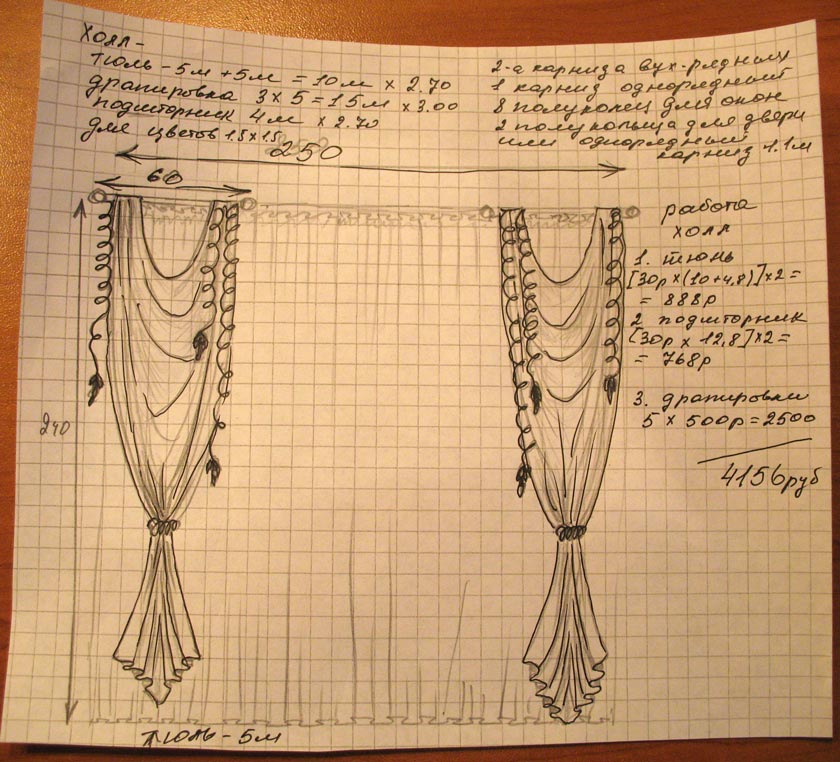 Холл -
тюль - 5м + 5м = 10м х 2.70
драпировка 3 х 5 = 15м х 3.00
подшторник 4м х 2.70
для цветов 1.5 х 1.5
2-а карниза вух-рядных
1 карниз однорядный
8 полуколец для окон
2 полукольца для двери
или однорядный
карниз 1.1м
250
60
240
работа
холл
1. тюнь
[30р х (10+4,8)] х 2 =
= 888р
2 подшторник
[30р х 12,8] х 2 =
= 768р
3. драпировки
5 х 500р = 2500
4156руб
тюль - 5м